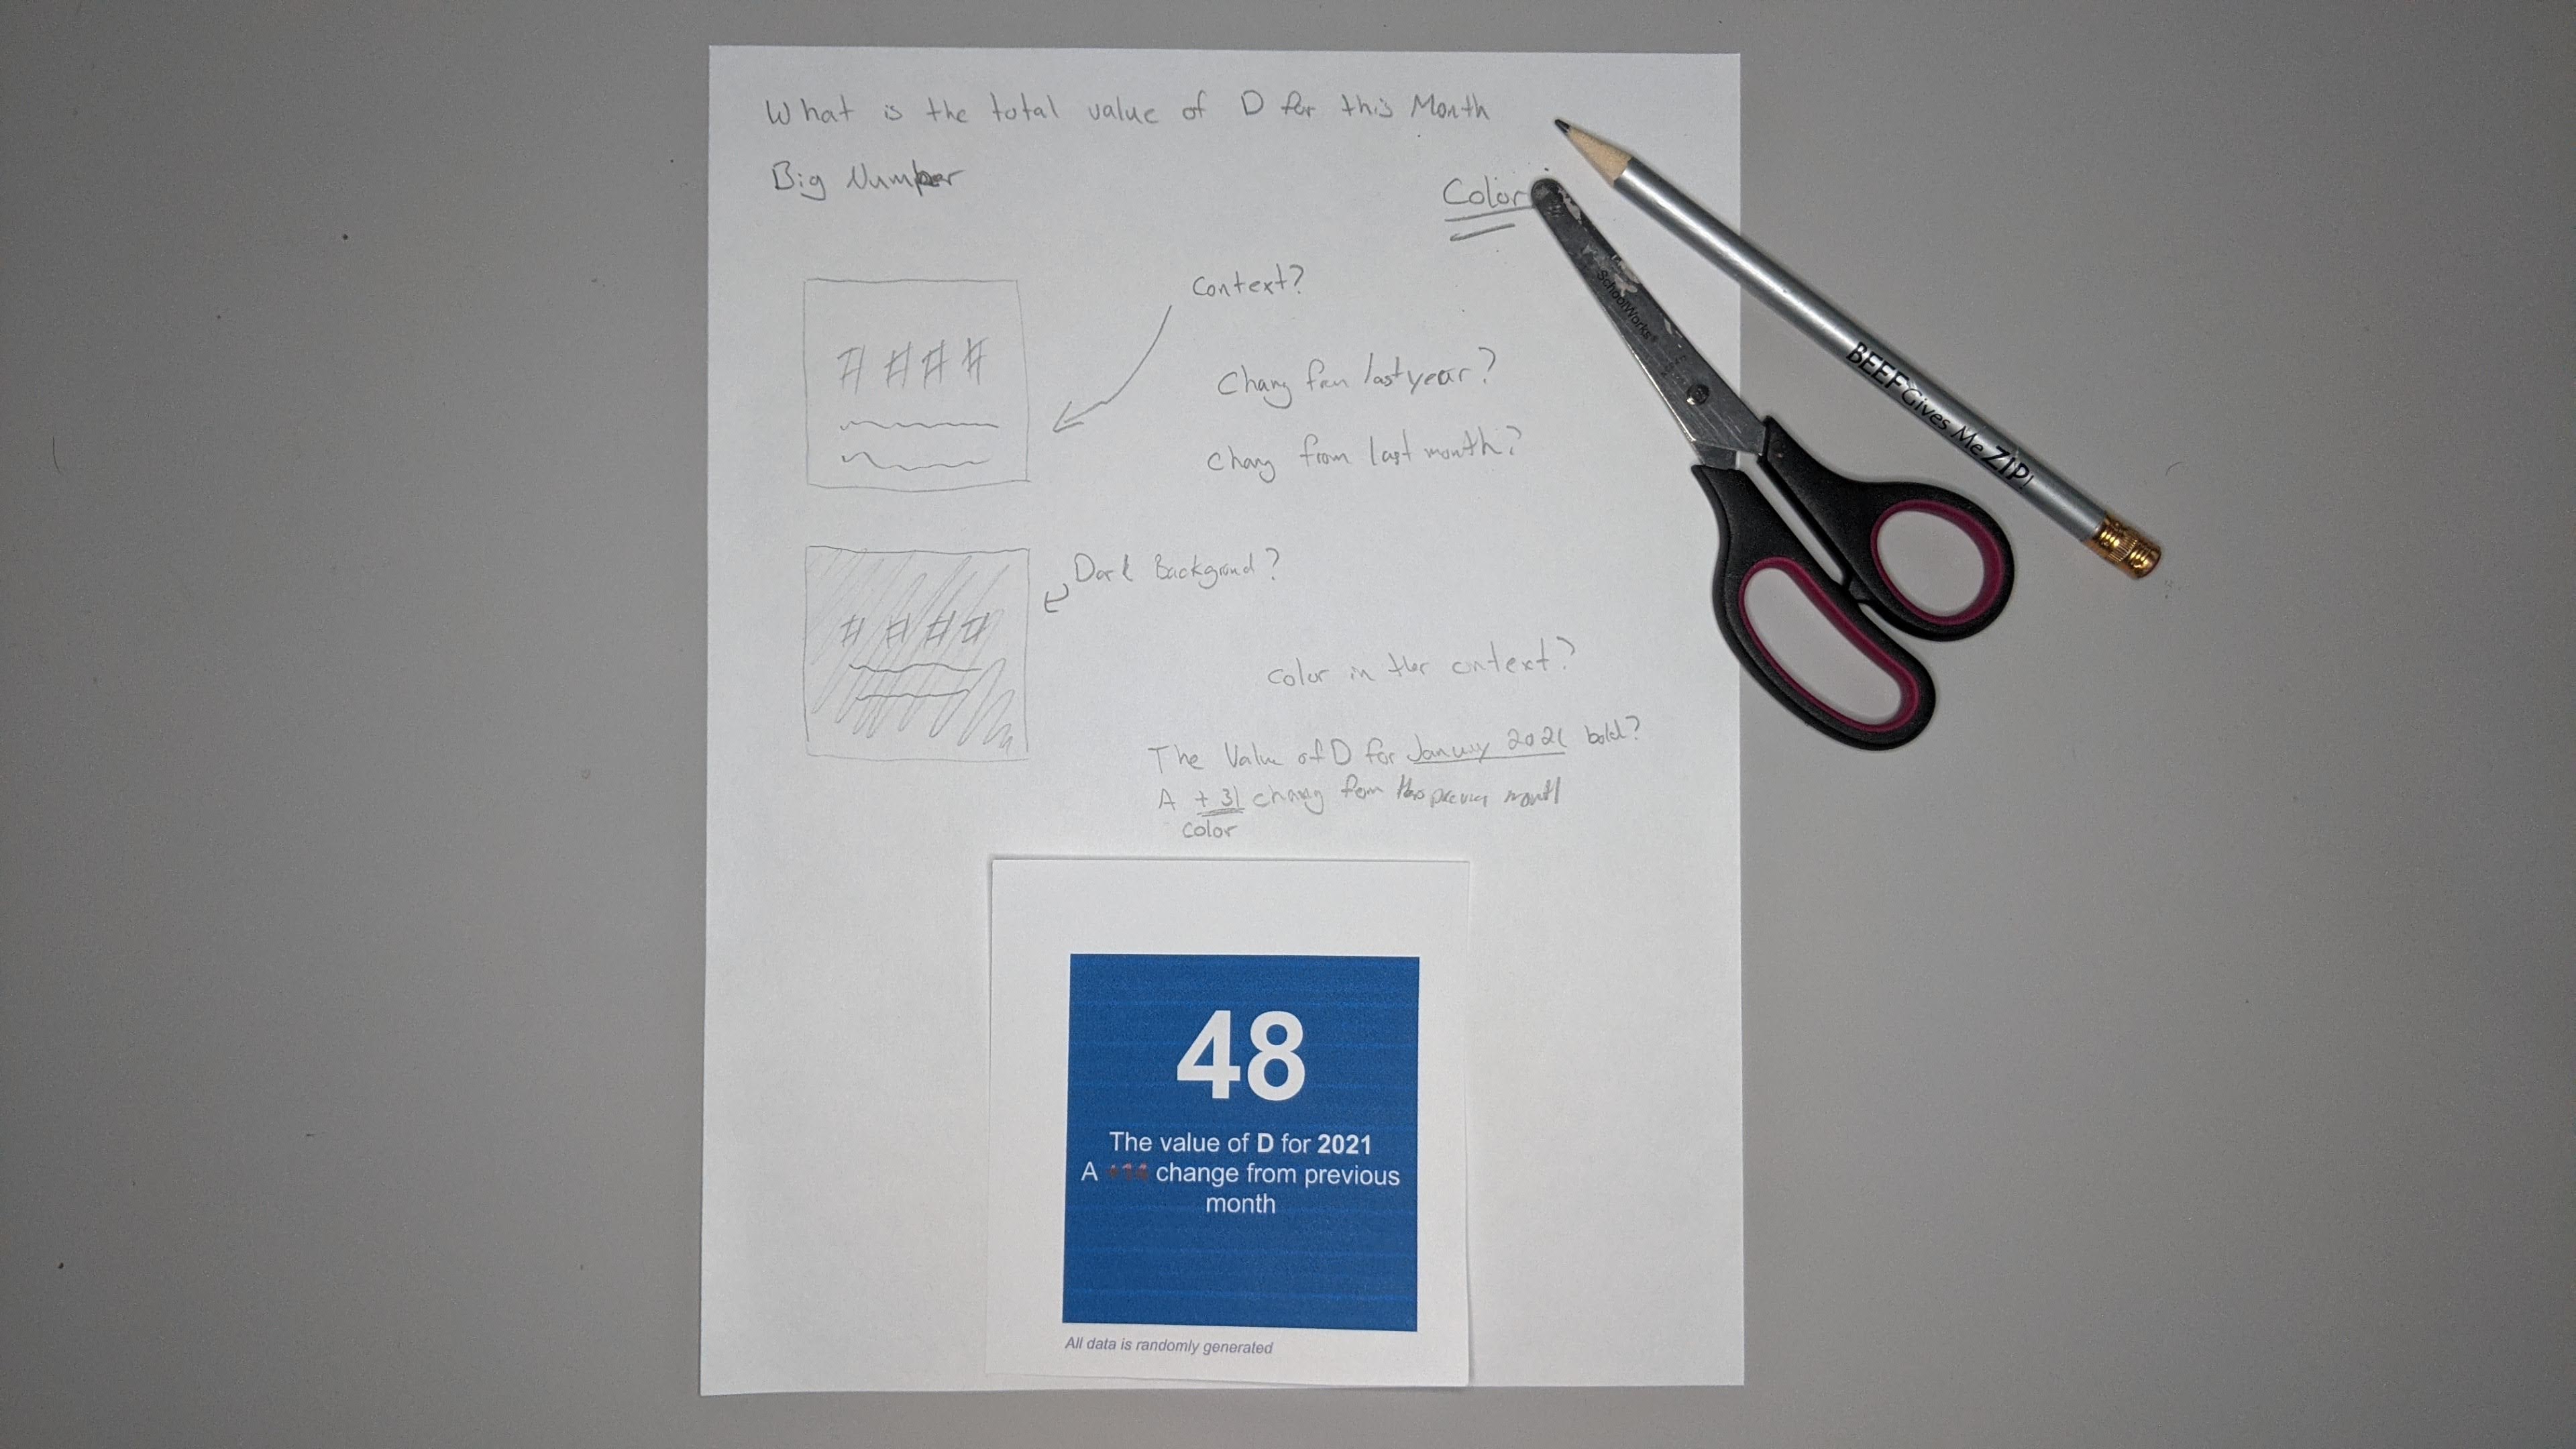 What is the total value of D for this Month
Big Number
Color
Context?
# # # #
Chang from last year?
Chang from last month?
Dark Background?
# # # #
Color in the context?
The Value of D for January 2021 bold?
A +31 chang from previous month
Color
SchoolWorks®
BEEF Gives Me ZIP!
48
The value of D for 2021
A change from previous
month
All data is randomly generated